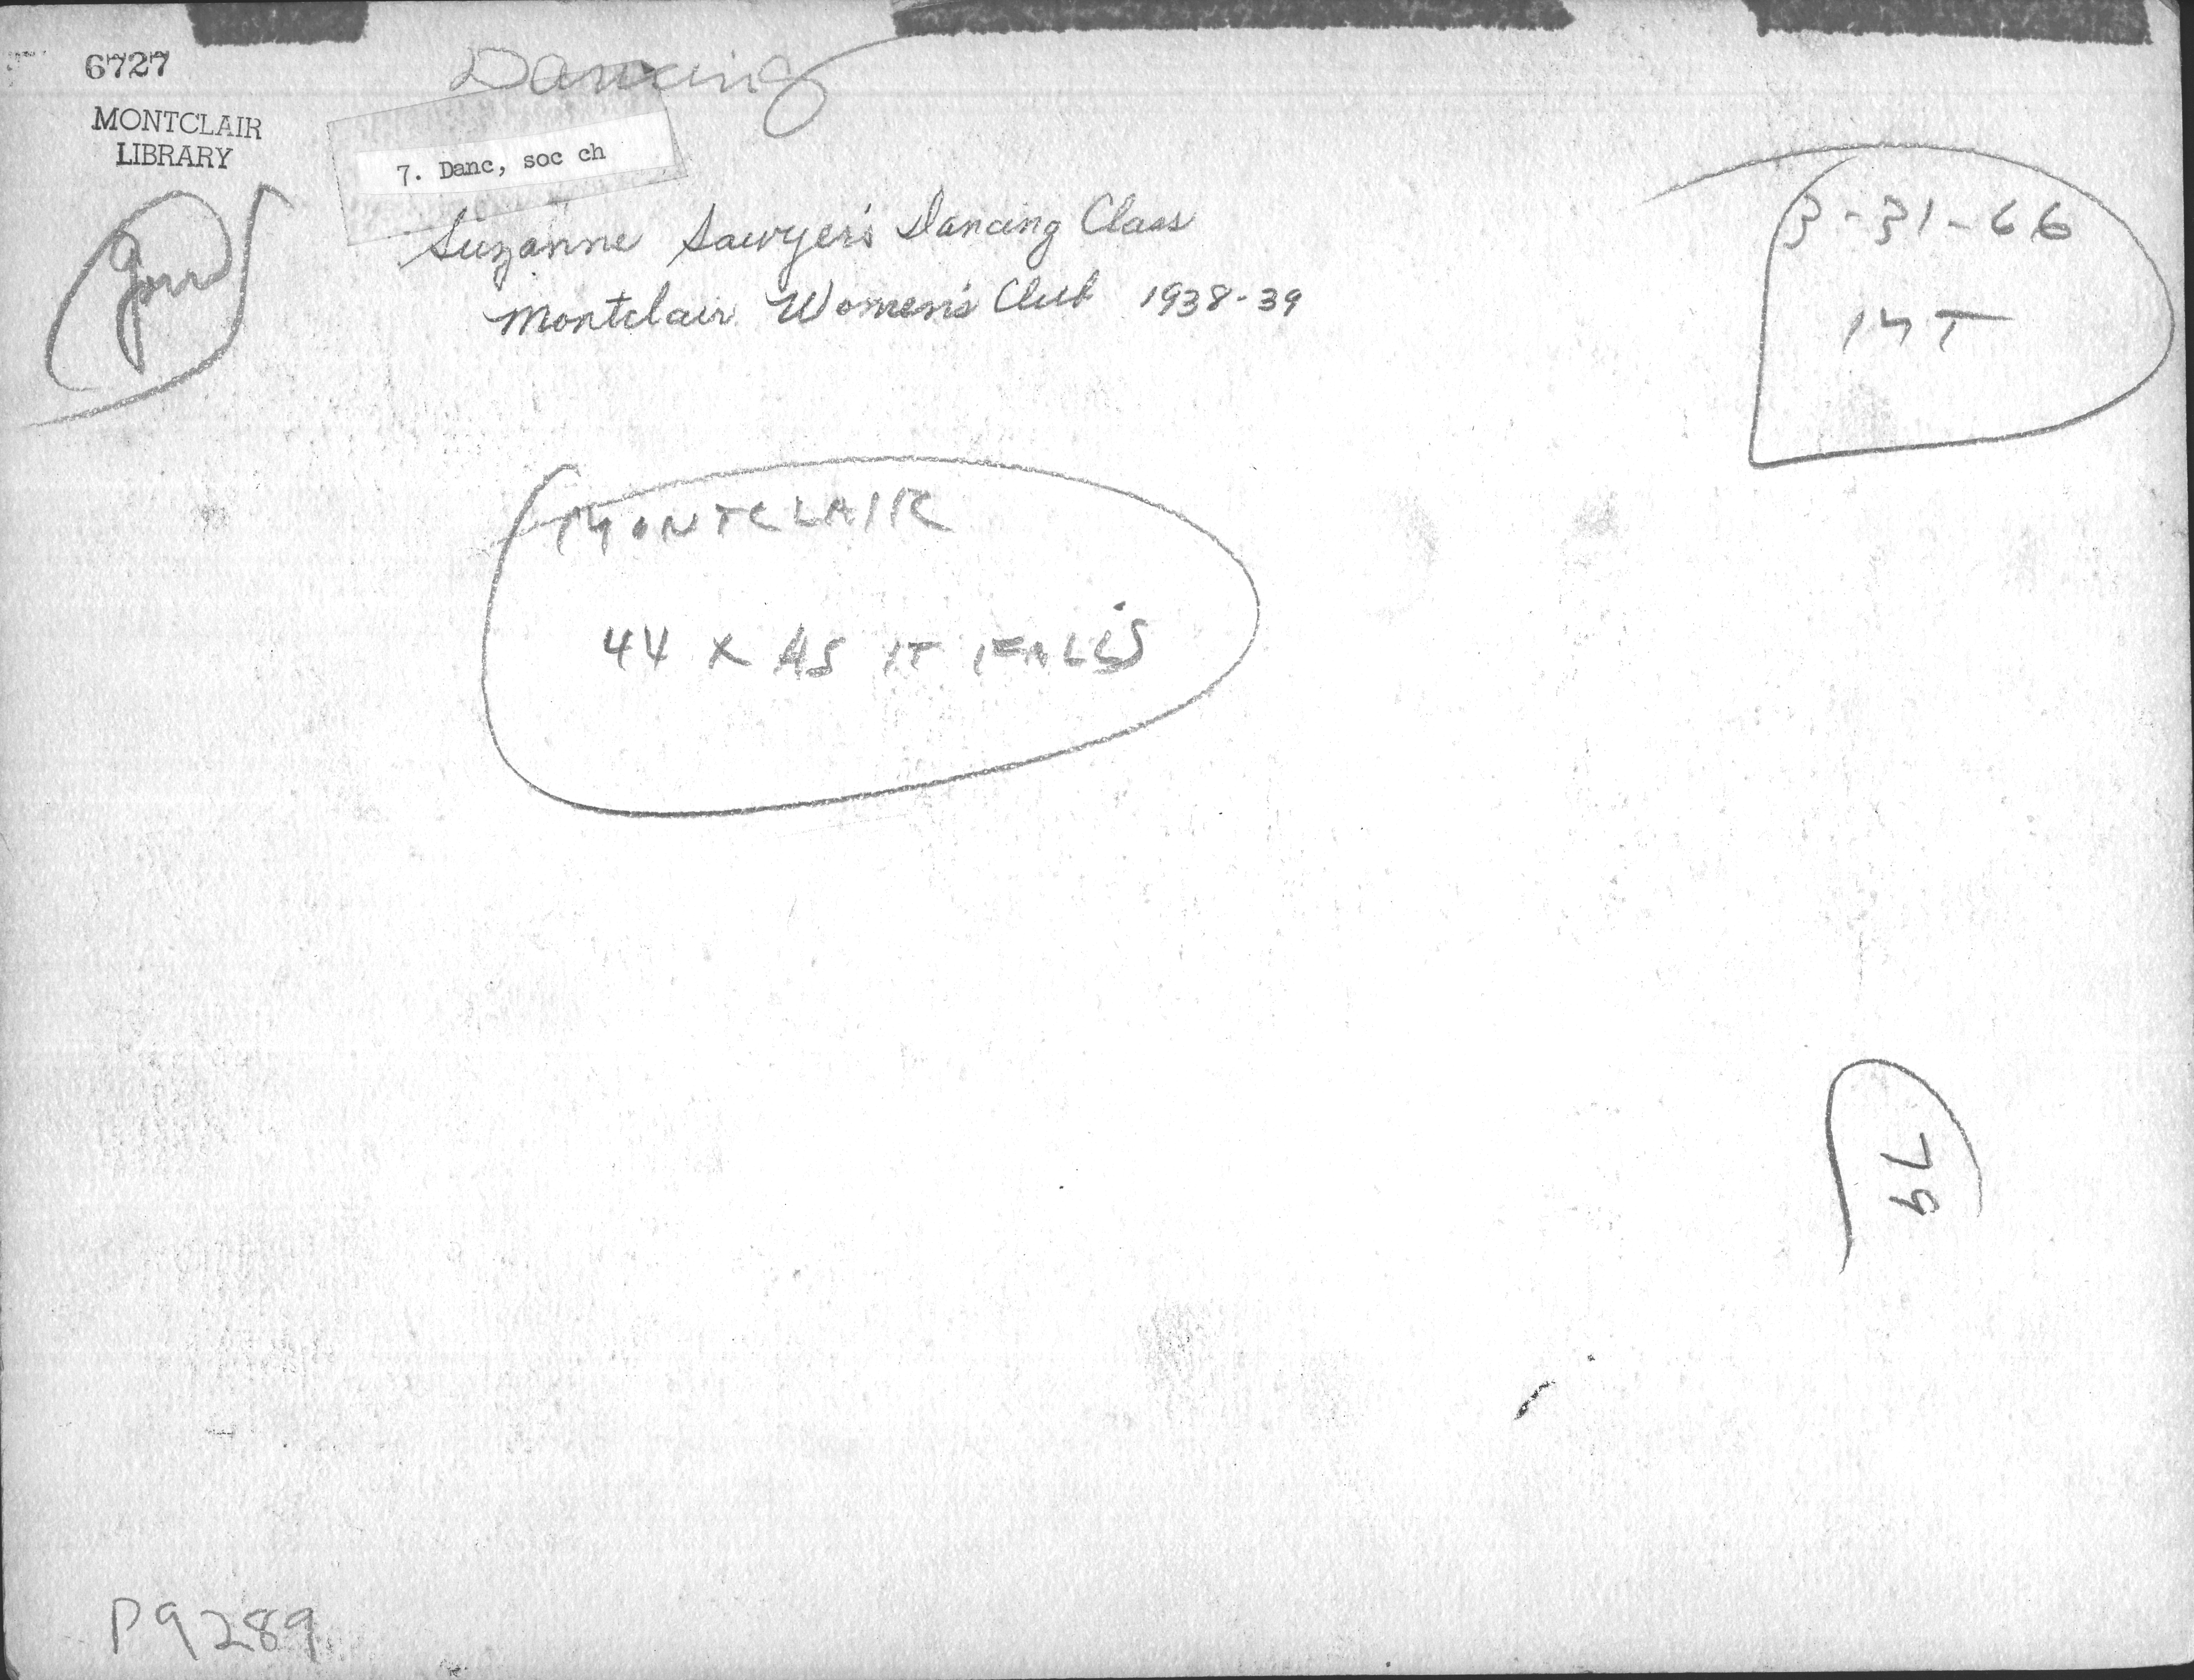 6727
Dancing
MONTCLAIR
LIBRARY
7. Danc, soc ch
Suzanne Sawyer's Dancing Class
Montclair Women's Club 1938-39
3-31-66
MT
MONTCLAIR
44 X AS IT FALLS
P9289